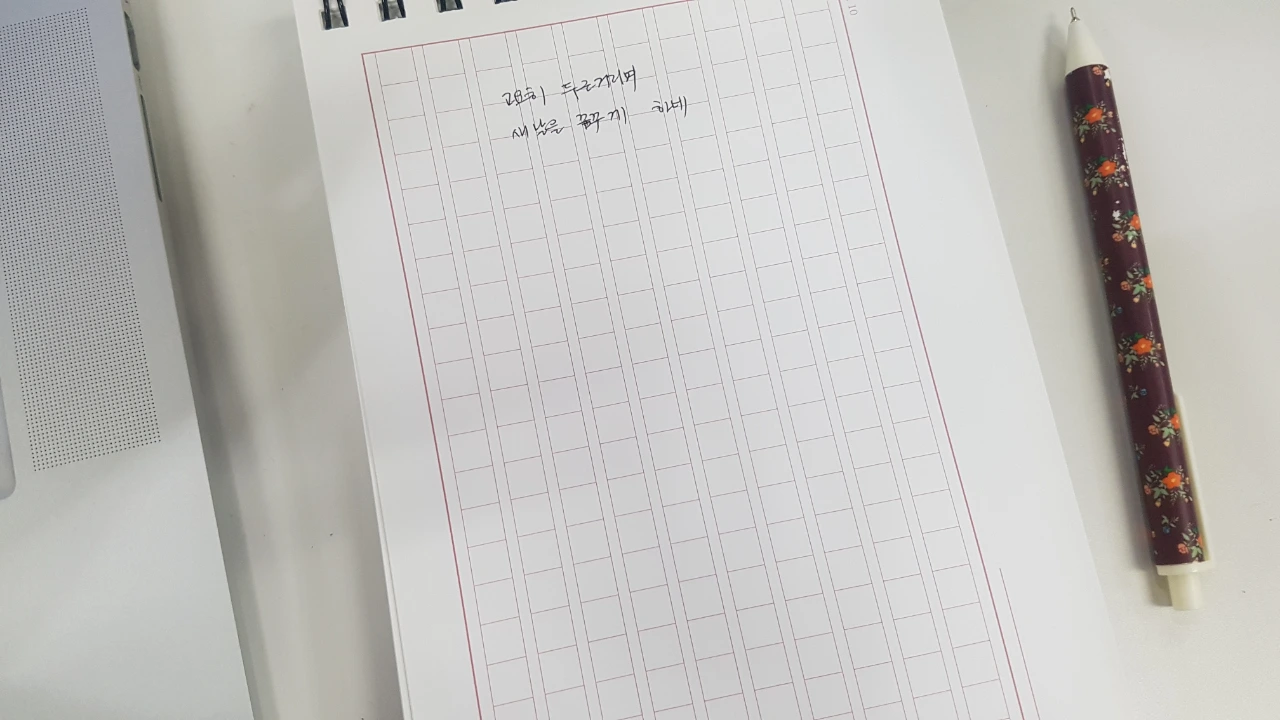 고요히 두근거리며
새날을 꿈꾸게 하네
10